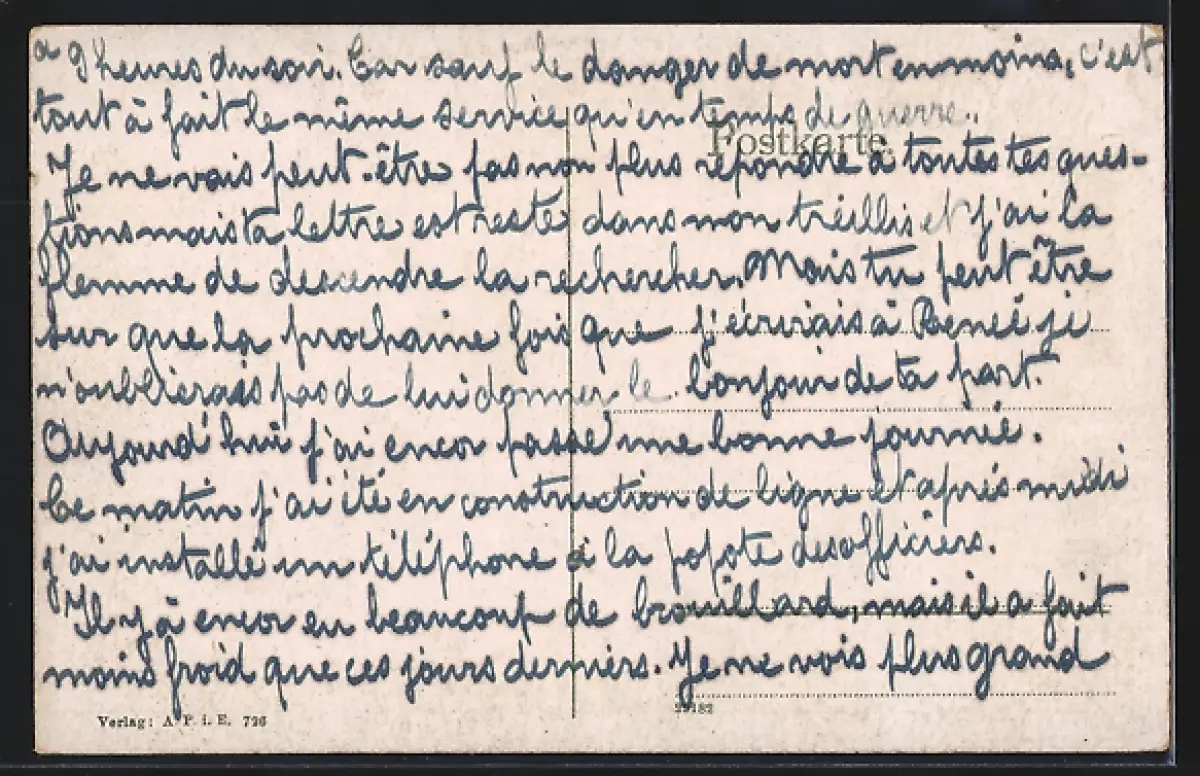 à 9 heures du soir. Car sauf le danger de mort en moins, c'est
tout à fait le même service qu'en temps de guerre.
Postkarte
Je ne vais peut-être pas non plus répondre à toutes tes ques-
tions mais ta lettre est resté dans mon tréillis et j'ai la
flemme de descendre la rechercher. Mais tu peut être
sur que la prochaine fois que j'écrirais à Reneé je
n'oublierais pas de lui donner le bonjour de ta part.
Aujourd'hui j'ai encor passé une bonne journeé.
Ce matin j'ai été en construction de ligne et après midi
j'ai installé un téléphone à la popote des officiers.
Il y à encor eu beaucoup de brouillard, mais il a fait
moins froid que ces jours derniers. Je ne vois plus grand
Verlag: A. P. i. E. 726